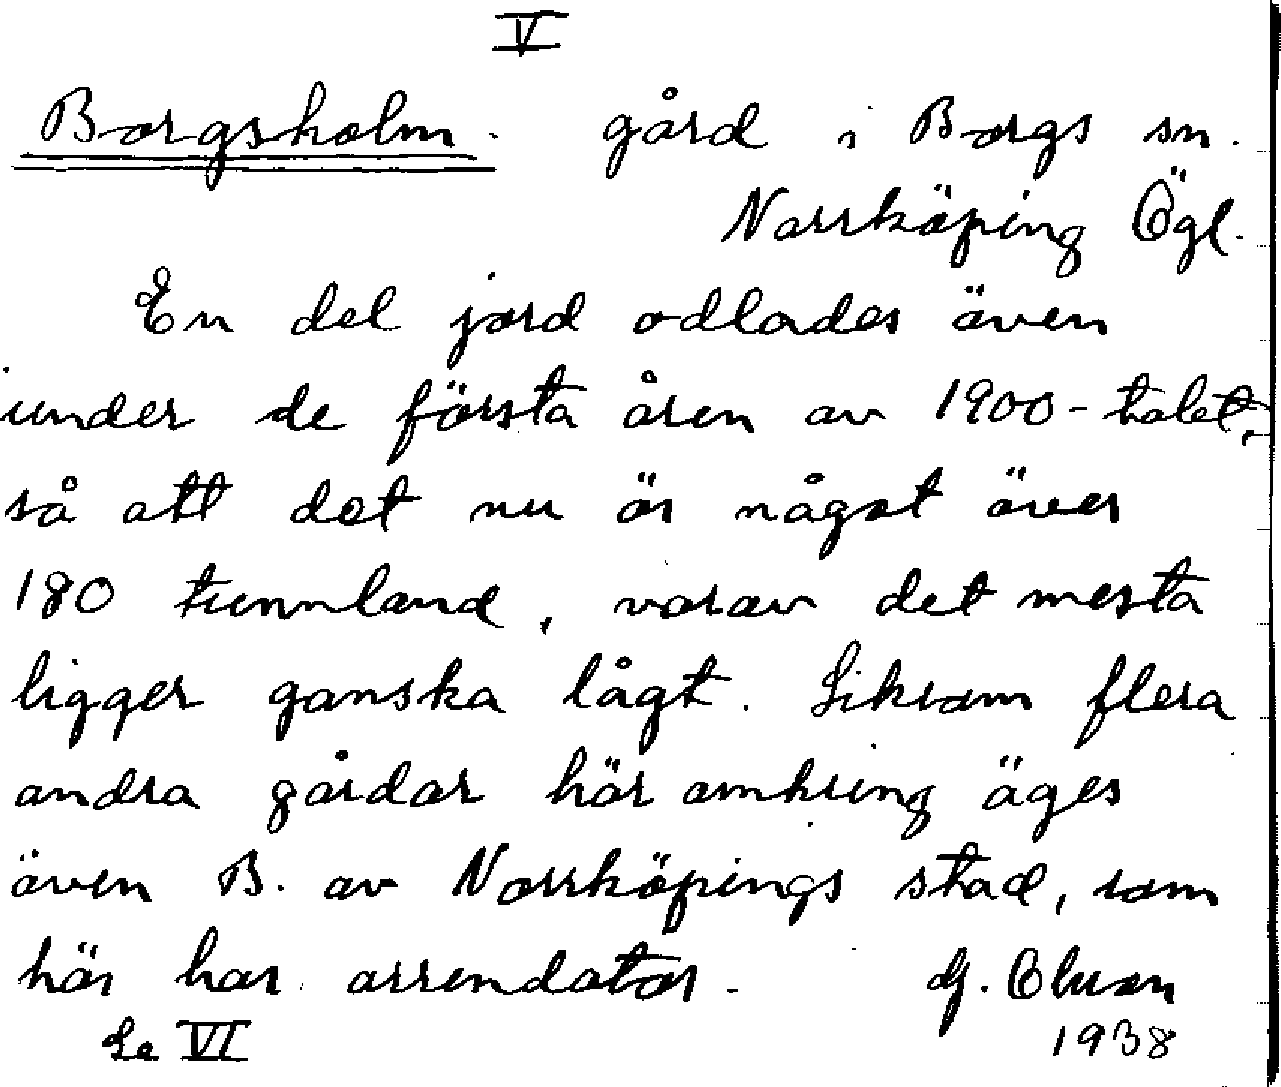 V
Borgsholm. gård i Borgs sn.
Norrköping Ögl.
En del jord odlades även
under de första åren av 1900-talet,
så att det nu är något över
180 tunnland, varav det mesta
ligger ganska lågt. Liksom flera
andra gårdar här omkring äges
även B. av Norrköpings stad, som
här har arrendator.
Se VI 1938